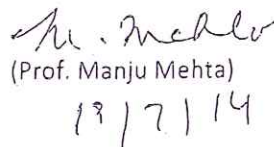 M. Mehta
(Prof. Manju Mehta)
18/7/14